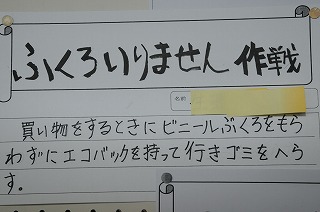 ふくろいりません 作戦
名前
買い物をするときにビニールぶくろをもら
わずにエコバックを持って行きゴミをへら
す。